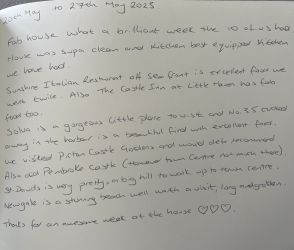 20th May to 27th May 2025
Fab house what a brilliant week the 10 of us had
House was supa clean and kitchen best equipped kitchen
we have had.
Sunshine Italian Resturant off sea front is excellent food we
went twice. Also The Castle Inn at Little Haven has fab
food too.
Solva is a gorgeous little place to visit and No.35 tucked
away in the harbour is a beautiful find with excellent food.
We visited Picton Castle Gardens and would def recommend
Also did Pembroke Castle (However town centre not much there).
St. Davids is very pretty, a big hill to walk up to town centre.
Newgale is a stunning beach well worth a visit, long and golden.
Thanks for an awesome week at the house ♡♡♡.